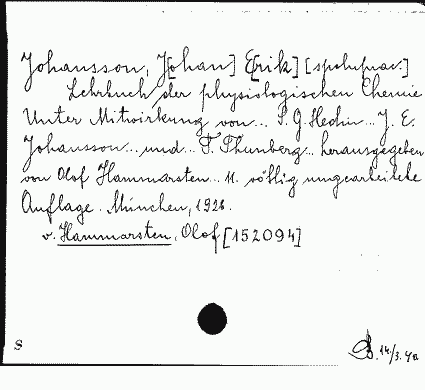 Johansson, J[ohan] E[rik] [spoluprac.]
Lehrbuch der physiologischen Chemie
Unter Mitwirkung von... S. G. Hedin... J. E.
Johansson... und... T. Thunberg... herausgegeben
von Olof Hammarsten... 11. völlig umgearbeitete
Auflage. München, 1926.
v. Hammarsten, Olof [152094]
S
14/3.